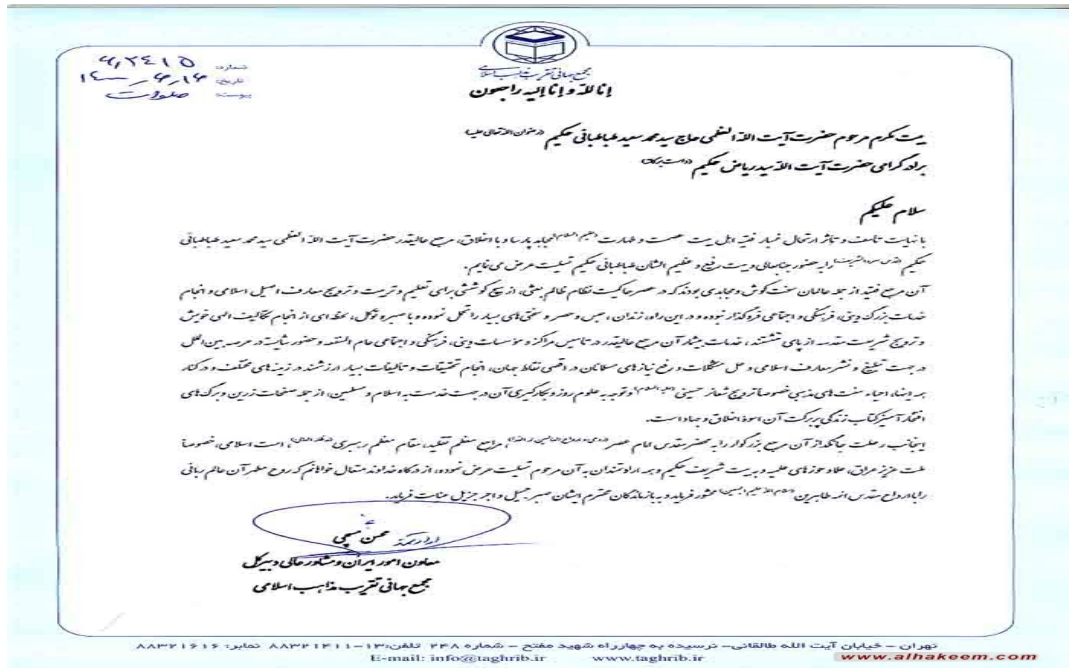 شماره: ۹٫۲٤۱۵
تاریخ: ۱٤۰۰٫۶٫۱۶
پیوست: صلوات
مجمع جهانی تقریب مذاهب اسلامی
انا للّه و انا الیه راجعون
بیت مکرم مرحوم حضرت آیت الله العظمی حاج سید محمد سعید طباطبائی حکیم (رضوان الله تعالی علیه)
برادر گرامی حضرت آیت الله سید ریاض حکیم (دامت برکاته)
سلام علیکم
با نهایت تاسف و تاثر ارتحال غمبار فقیه اهل بیت عصمت و طهارت (علیهم السلام) مجاهد پارسا و با اخلاق، مرجع عالیقدر حضرت آیت الله العظمی سید محمد سعید طباطبائی
حکیم را به حضور جنابعالی و بیت رفیع و عظیم الشان طباطبائی حکیم تسلیت عرض می نمایم.
آن مرجع فقید از جمله عالمان سخت کوش و مجاهدی بودند که در عصر حاکمیت نظام ظالم بعثی، از هیچ کوششی برای تعلیم و تربیت و ترویج معارف اصیل اسلامی و انجام
خدمات بزرگ دینی، فرهنگی و اجتماعی فروگذار نبوده و در این راه، زندان، حبس و حصر و سختی های بسیار را تحمل نموده و با صبر و توکل، لحظه ای از انجام تکالیف الهی خویش
و ترویج شریعت مقدسه از پای ننشستند، خدمات بیشمار آن مرجع عالیقدر در تاسیس مراکز و موسسات دینی، فرهنگی و اجتماعی عام المنفعه و حضور شایسته در عرصه بین الملل
در جهت تبلیغ و نشر معارف اسلامی و حل مشکلات و رفع نیازهای مسلمانان در اقصی نقاط جهان، انجام تحقیقات و تالیفات بسیار ارزشمند در زمینه های مختلف و در کنار
همه اینها، احیاء سنت های مذهبی خصوصاً ترویج شعائر حسینی (علیه السلام) و توجه به علوم روز و بکارگیری آن در جهت خدمت به اسلام و مسلمین، از جمله صفحات زرین و برگ های
افتخار آمیز کتاب زندگی پر برکت آن اسوه اخلاق و جهاد است.
اینجانب رحلت جانگداز آن مرجع بزرگوار را به محضر مقدس امام عصر، مراجع معظم تقلید، مقام معظم رهبری، امت اسلامی، خصوصاً
ملت عزیز عراق، علماء حوزه های علمیه و بیت شریف حکیم و همه ارادتمندان به آن مرحوم تسلیت عرض نموده، از درگاه خداوند متعال خواهانم که روح مطهر آن عالم ربانی
را با ارواح مقدس ائمه طاهرین (سلام الله علیهم اجمعین) محشور فرماید و به بازماندگان محترم ایشان صبر جمیل و اجر جزیل عنایت فرماید.
ارادتمند محسن مسچی
معاون امور ایران و مشاور عالی دبیرکل
مجمع جهانی تقریب مذاهب اسلامی
تهران – خیابان آیت الله طالقانی– نرسیده به چهارراه شهید مفتح – شماره ۲۴۸ تلفن:۱۳–۸۸۳۲۱۴۱۱ نمابر: ۸۸۳۲۱۶۱۶
E-mail: info@taghrib.ir www.taghrib.ir
www.alhakeem.com